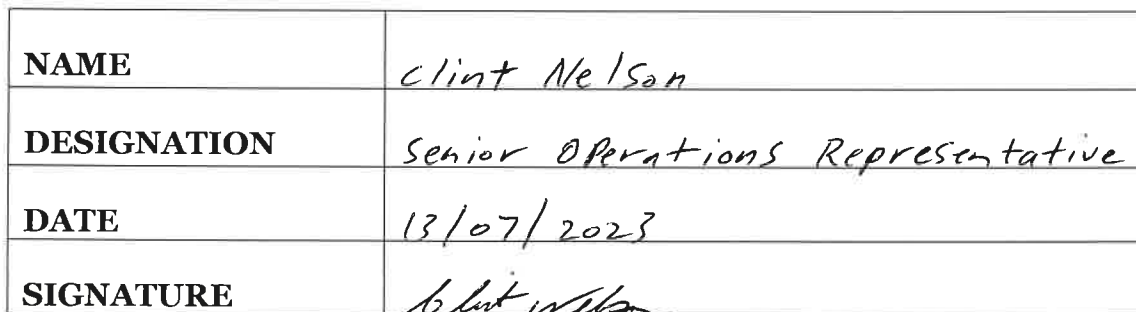 NAME clint Nelson
DESIGNATION Senior Operations Representative
DATE 13/07/2023
SIGNATURE